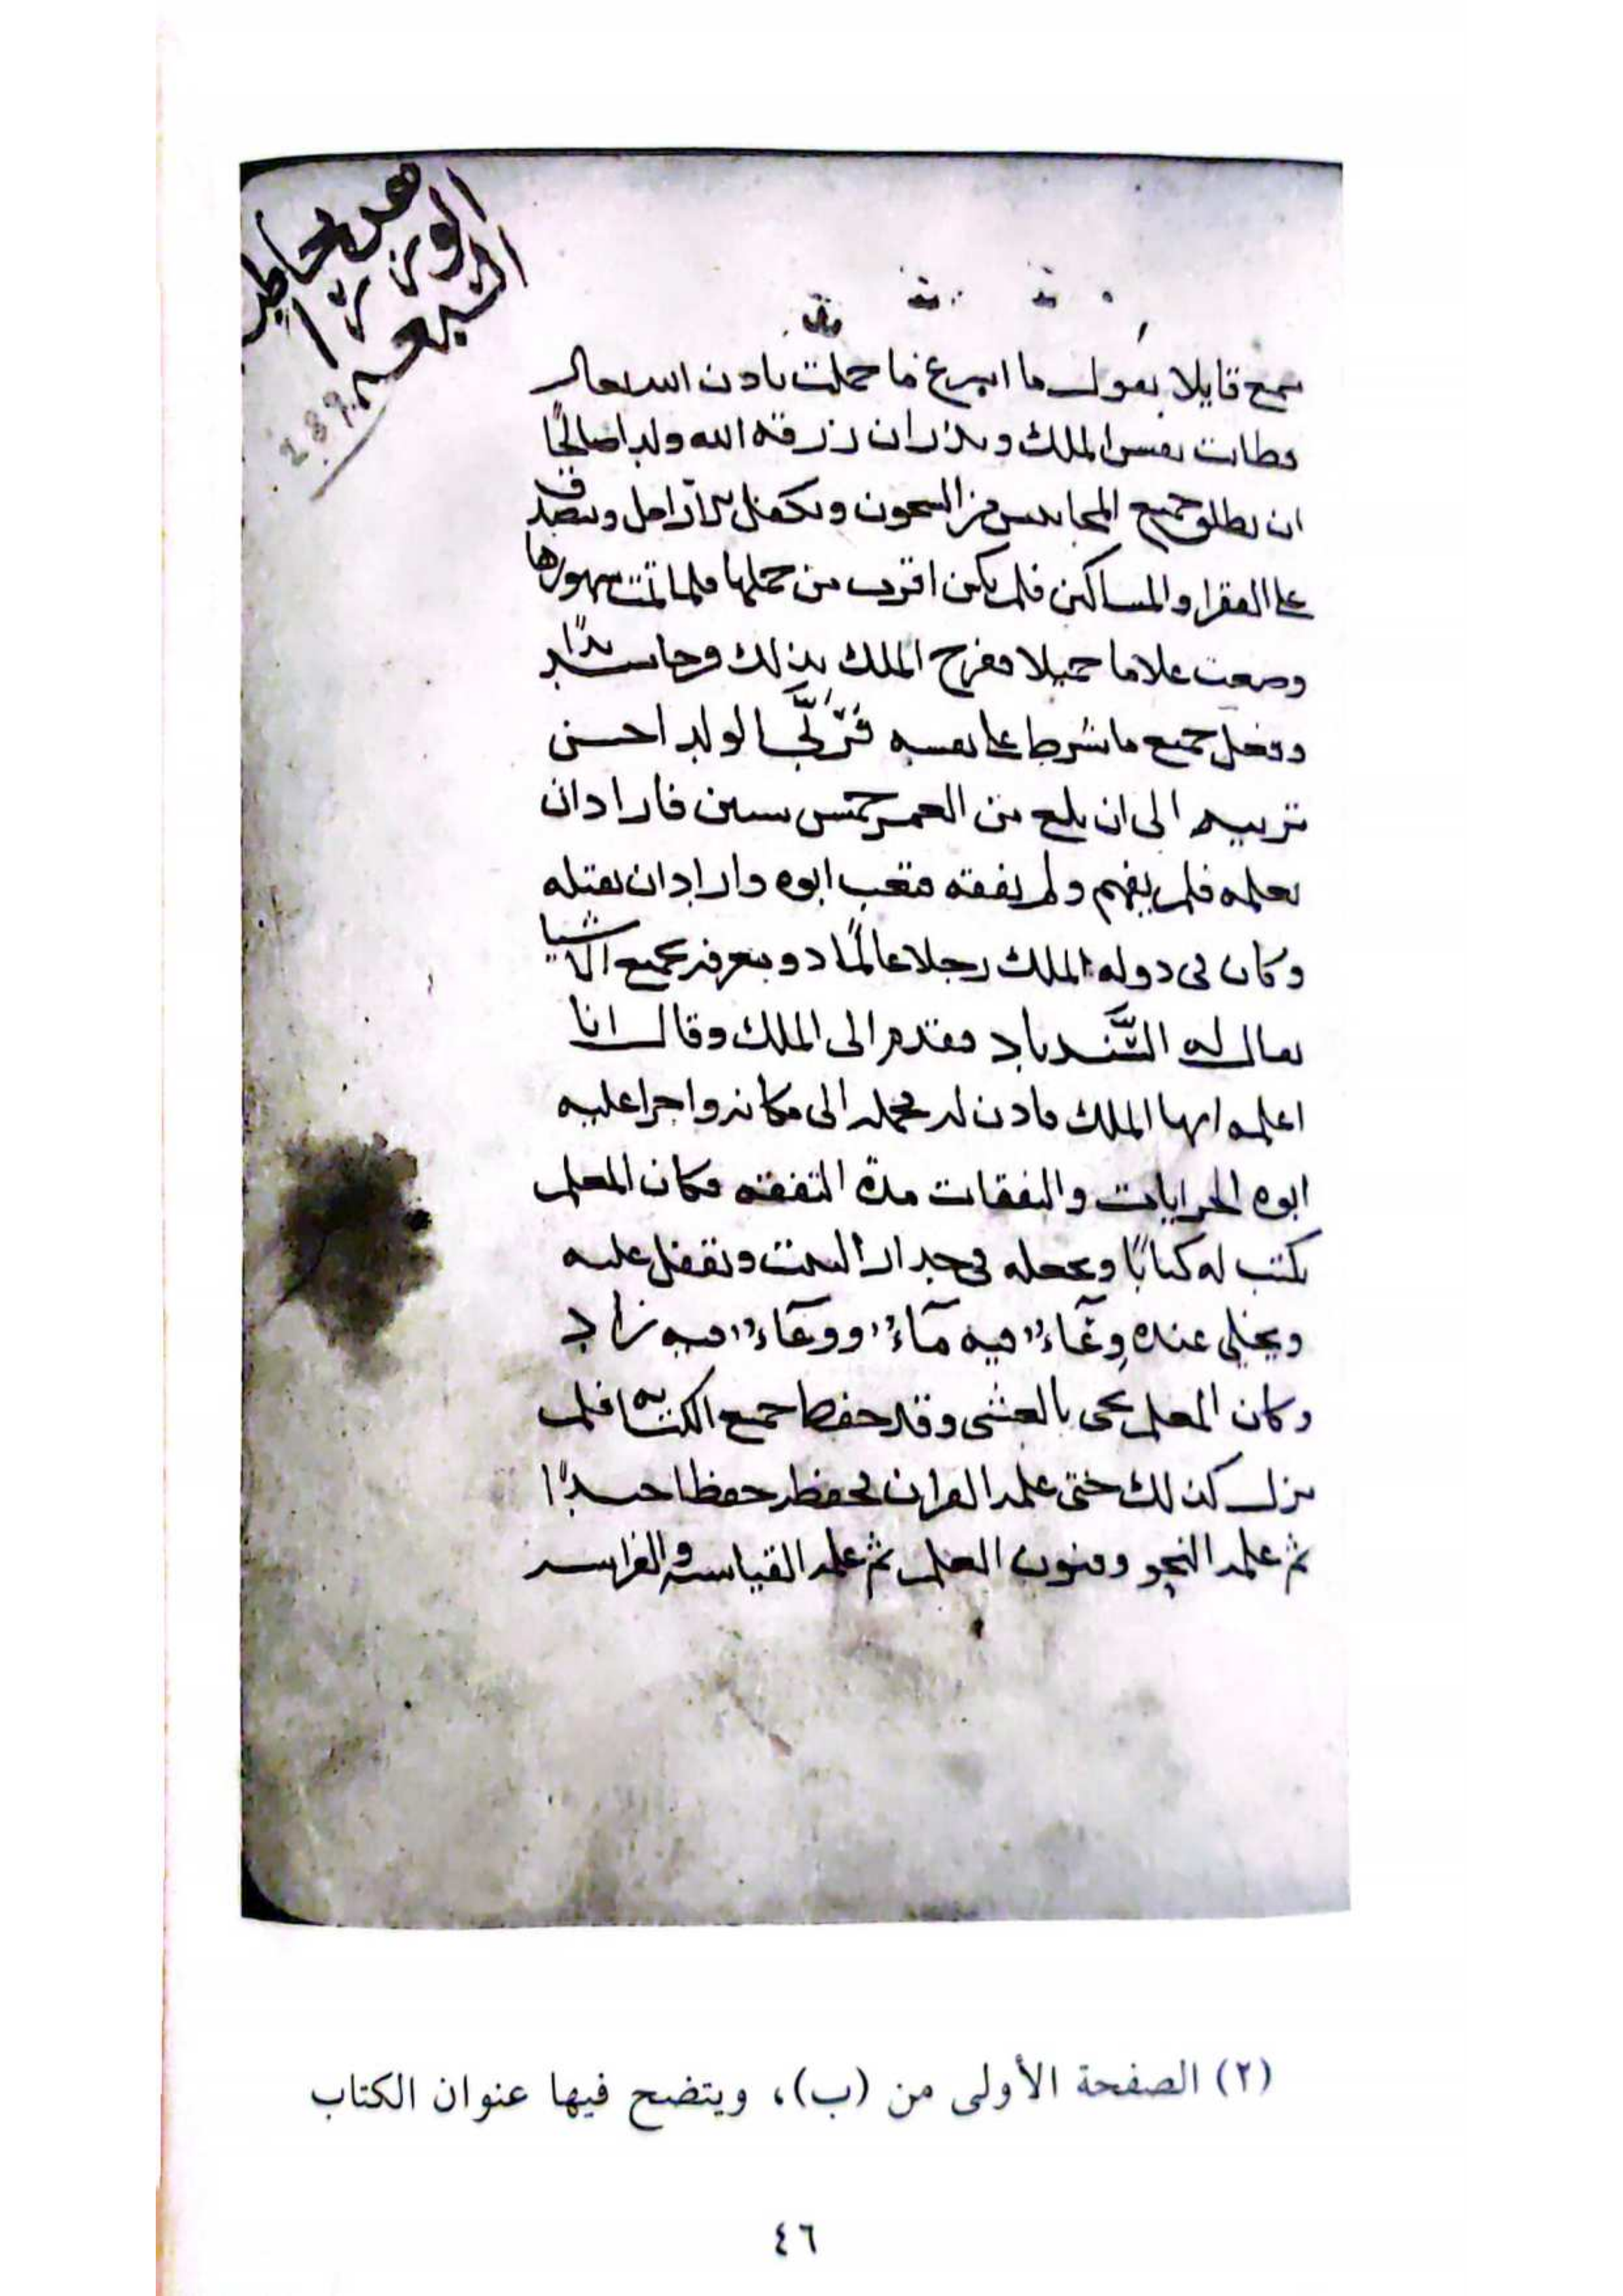 الوزر
السبعه
289
سمع قايلا يقول ما اسرع ما حملت باذن الله تعالى
فطابت نفس الملك ونذر ان رزقه الله ولدا صالحًا
ان يطلق جميع المحابيس من السجون ويكفل الارامل ويتصدق
على الفقرا والمساكين فلم يكن اقرب من حملها فلما تمت شهورها
وضعت غلاما جميلا ففرح الملك بذلك فرحا شديدًا
وفعل جميع ما شرط على نفسه فتربَّى الولد احسن
تربيه الى ان بلغ من العمر خمس سنين فاراد ان
يعلمه فلم يفهم ولم يفقه فتعب ابوه واراد ان يقتله
وكان في دوله الملك رجلا عالمًا ذو معرفه بجميع الاشيا
يقال له السَّندباد فتقدم الى الملك وقال انا
اعلمه ايها الملك فاذن له فحمله الى مكانه واجرا عليه
ابوه الجرايات والنفقات مدة التفقه فكان المعلم
يكتب له كتابًا ويجعله في جدار البيت ويقفل عليه
ويخلي عنده وِعَاء فيه مَاء ووِعَاء فيه زاد
وكان المعلم يجى بالعشى وقد حفظ جميع الكتابه فلم
يزل كذلك حتى علمه القران فحفظه حفظا جيدًا
ثم علمه النحو وفنون العلم ثم علمه القياسه والفراسه
(٢) الصفحة الأولى من (ب)، ويتضح فيها عنوان الكتاب
٤٦